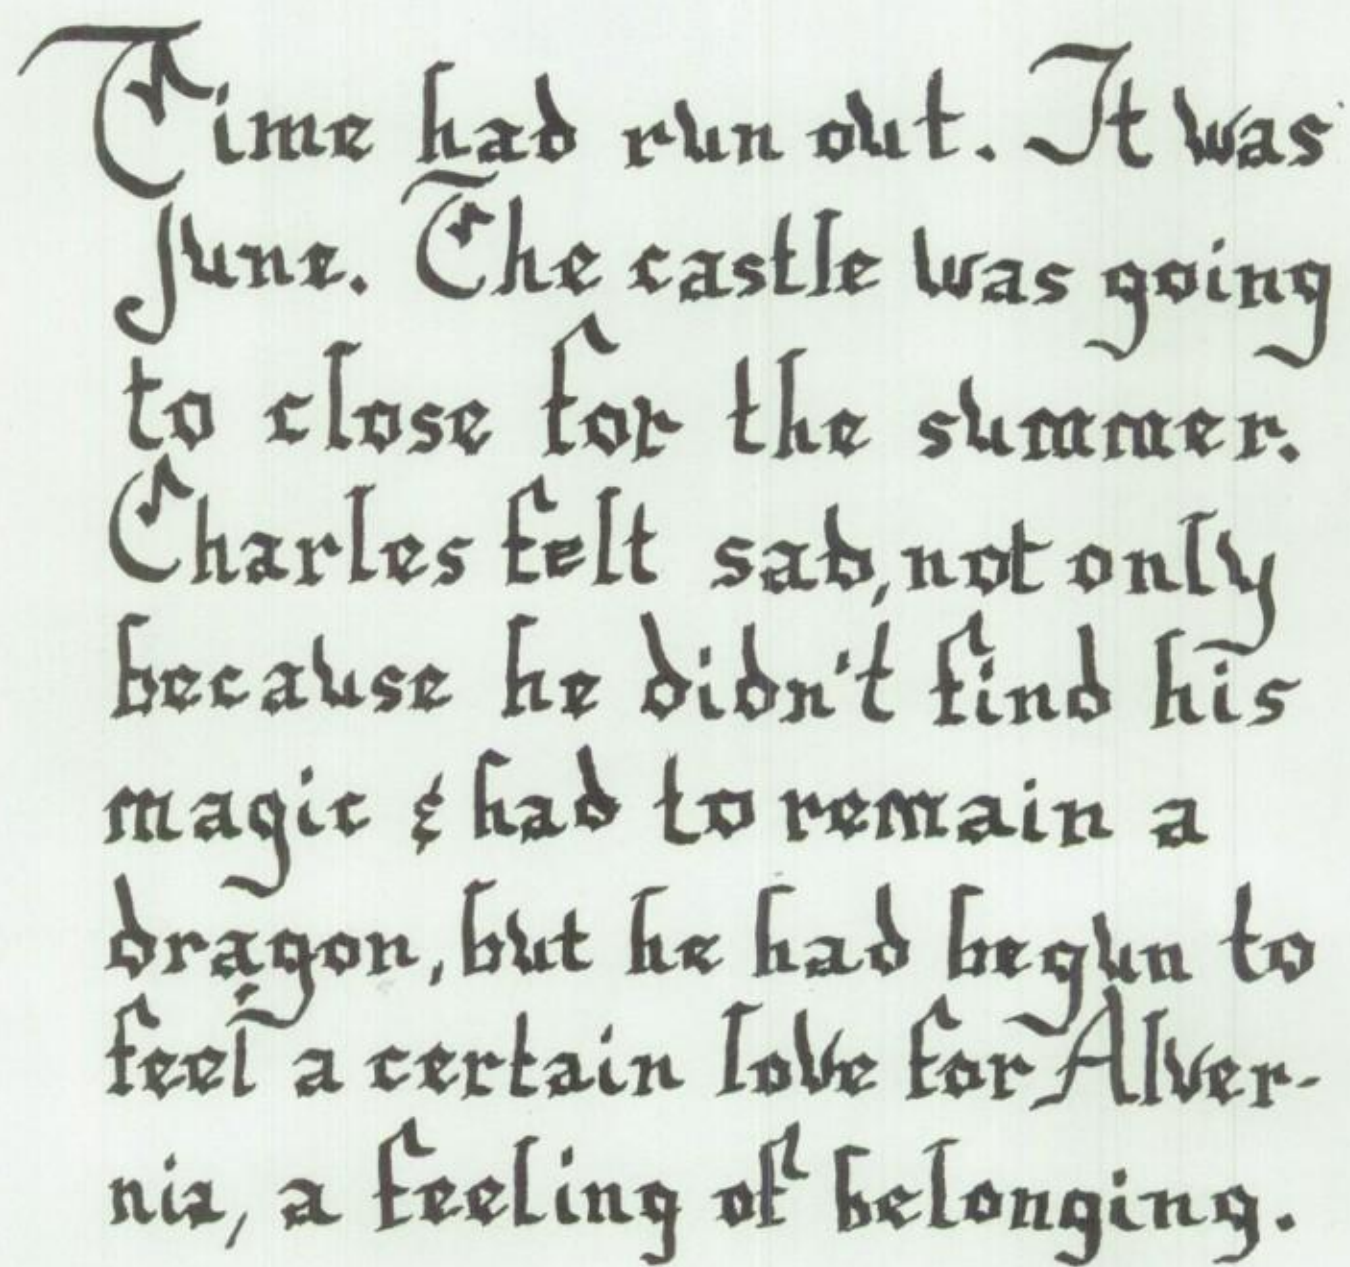 Time had run out. It was
June. The castle was going
to close for the summer.
Charles felt sad, not only
because he didn't find his
magic & had to remain a
dragon, but he had begun to
feel a certain love for Alver-
nia, a feeling of belonging.